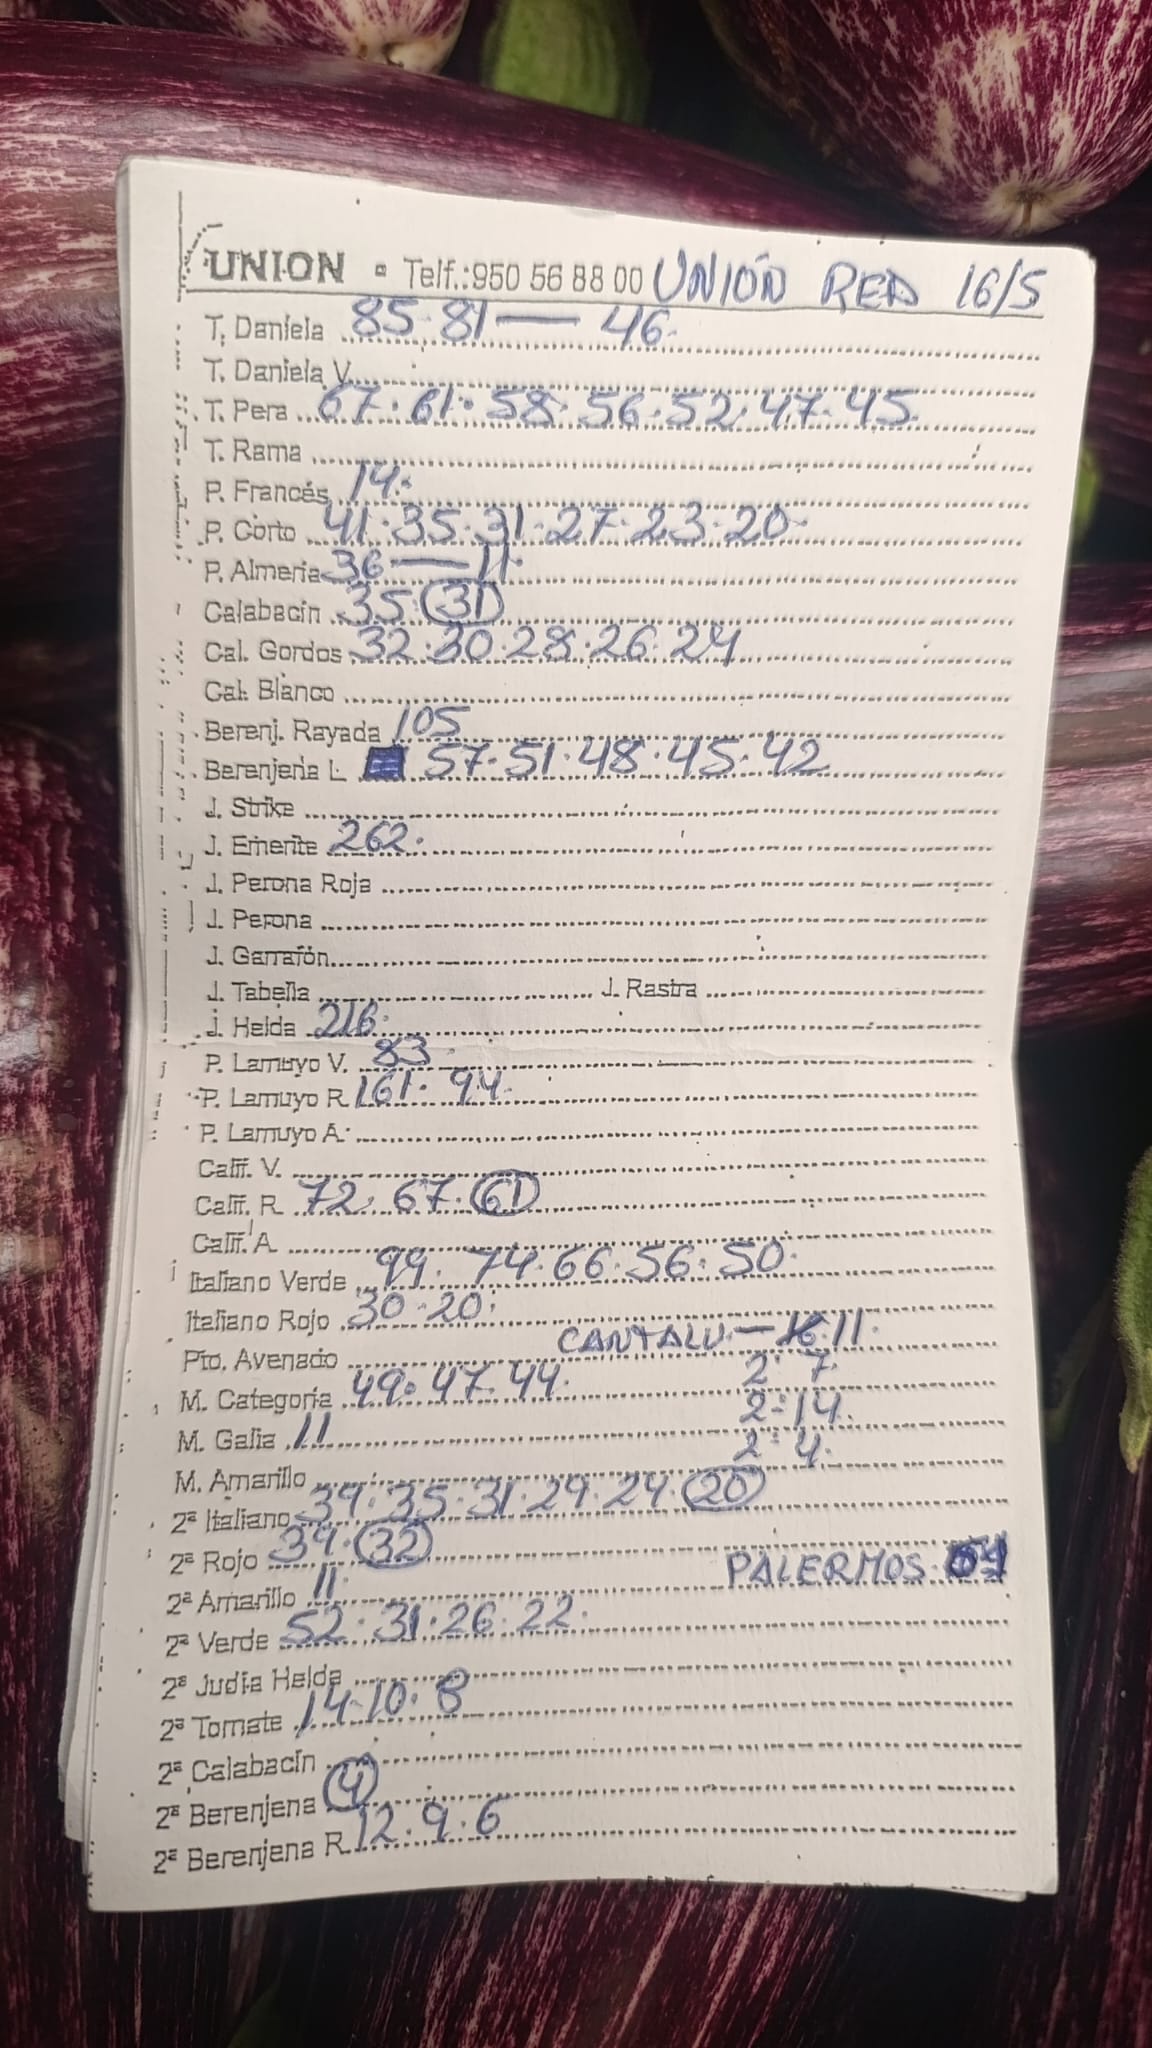 UNION ▪ Telf.:950 56 88 00 UNIÓN RED 16/5
T. Daniela 85·81 — 46·
T. Daniela V.
T. Pera 67·61·58·56·52·47·45·
T. Rama
P. Francés 14·
P. Corto 41·35·31·27·23·20·
P. Almeria 36 — 11·
Calabacin 35·31
Cal. Gordos 32·30·28·26·24
Cal. Blanco
Berenj. Rayada 105
Berenjena L 57·51·48·45·42
J. Strike
J. Emerite 262·
J. Perona Roja
J. Perona
J. Garrafón
J. Tabella J. Rastra
J. Helda 216·
P. Lamuyo V. 83·
P. Lamuyo R. 161· 94·
P. Lamuyo A.
Calif. V.
Calif. R. 72·67·61
Calif. A
Italiano Verde 99· 74·66·56·50·
Italiano Rojo 30·20·
CANTALU — 11·
Pto. Avenado 2ª 7
M. Categoria 49·47·44· 2ª 14.
M. Galia 11 2ª 4.
M. Amarillo
2ª Italiano 39·35·31·29·24·20
2ª Rojo 39·32
PALERMOS
2ª Amarillo 11·
2ª Verde 52·31·26·22·
2ª Judia Helda
2ª Tomate 14·10·8
2ª Calabacin
2ª Berenjena 4
2ª Berenjena R. 12·9·6